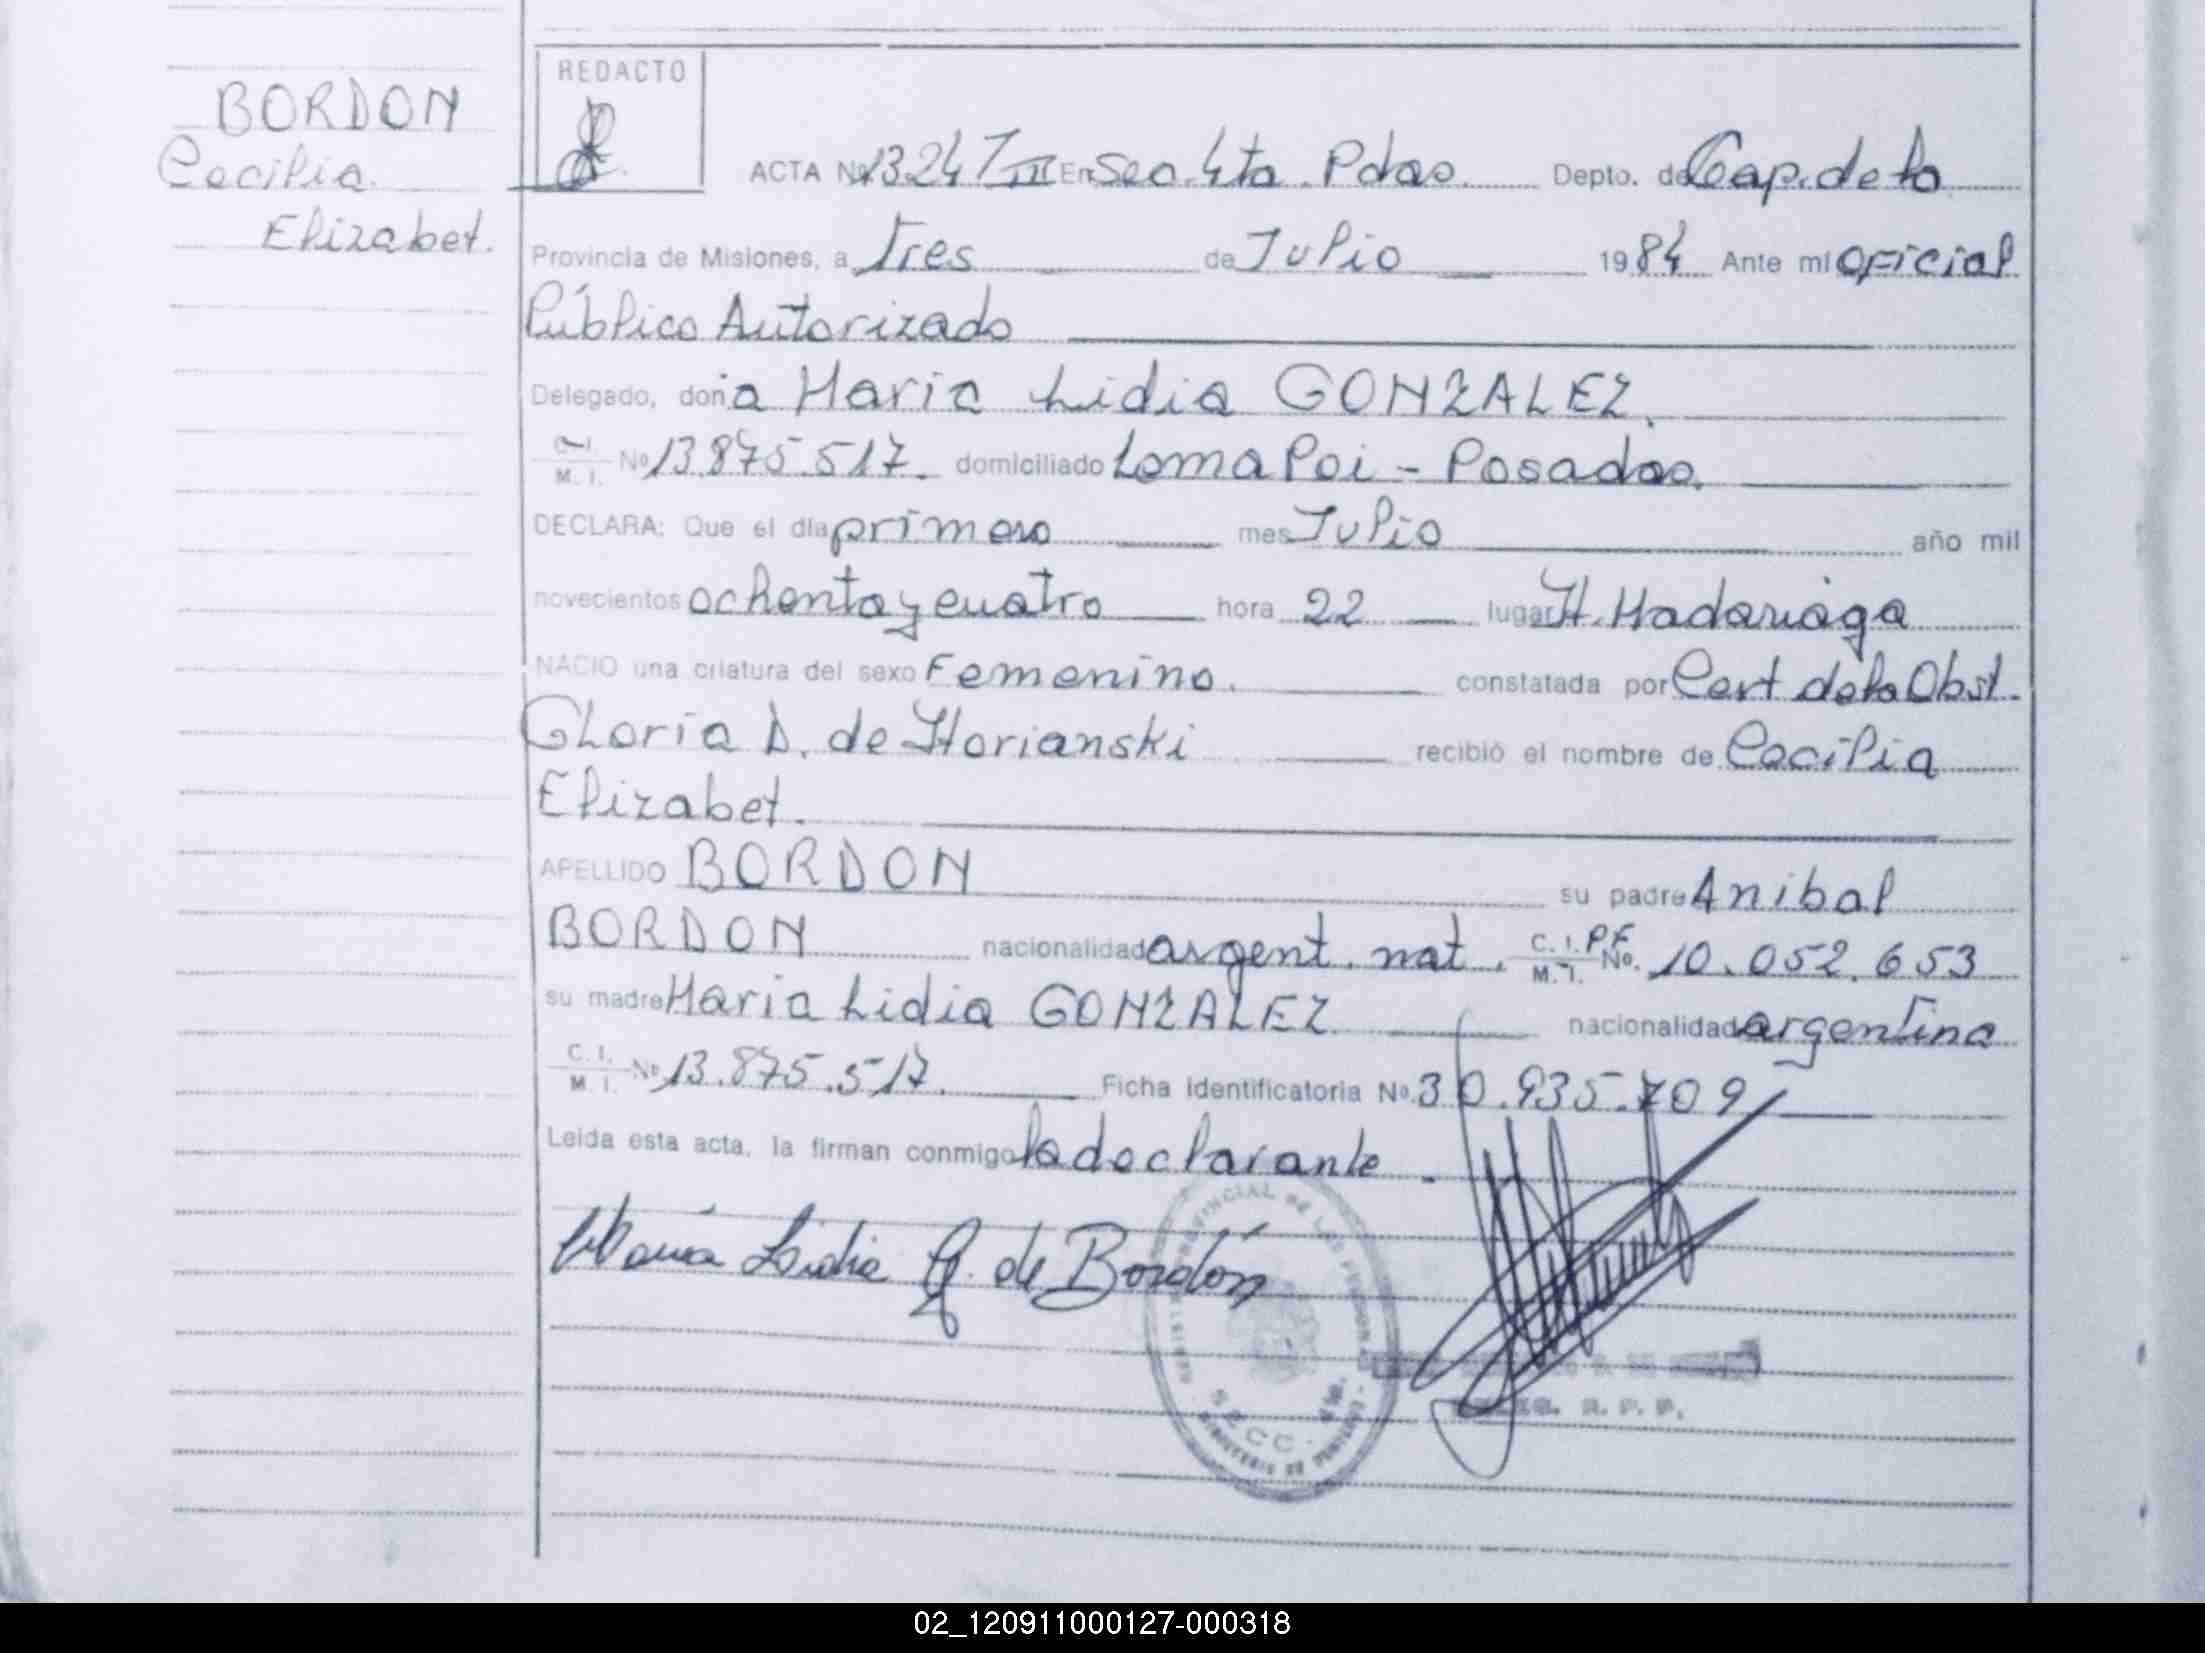 BORDON
Cecilia
Elizabet.
REDACTO
ACTA Nº 1324 T III En Sec. 4ta Pdas. Depto. de Cap. de la
Provincia de Misiones, a Tres de Julio 1984 Ante mi Oficial
Público Autorizado
Delegado, doña Maria Lidia GONZALEZ.
C.I. M. I. Nº 13.875.517. domiciliado Loma Poi - Posadas.
DECLARA: Que el día primero mes Julio año mil
novecientos ochenta y cuatro hora 22 lugar H. Madariaga
NACIO una criatura del sexo Femenino. constatada por Cert de la Obst.
Gloria D. de Horianski recibió el nombre de Cecilia
Elizabet.
APELLIDO BORDON su padre Anibal
BORDON nacionalidad argent. nat. C. I. P.F. M. I. Nº. 10.052.653
su madre Maria Lidia GONZALEZ nacionalidad argentina
C. I. M. I. Nº 13.875.517. Ficha identificatoria Nº 30.935.709
Leida esta acta, la firman conmigo la declarante.
María Lidia G. de Bordón
PROVINCIAL DE LAS PERSONAS
MINISTERIO DE
02_120911000127-000318